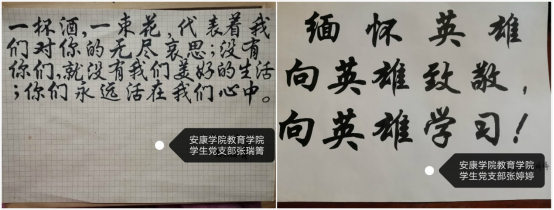 一杯酒,一束花,代表着我
们对你的无尽哀思;没有
你们,就没有我们美好的生活
;你们永远活在我们心中。
安康学院教育学院
学生党支部张瑞箐
缅怀英雄
向英雄致敬,
向英雄学习!
安康学院教育学院
学生党支部张婷婷